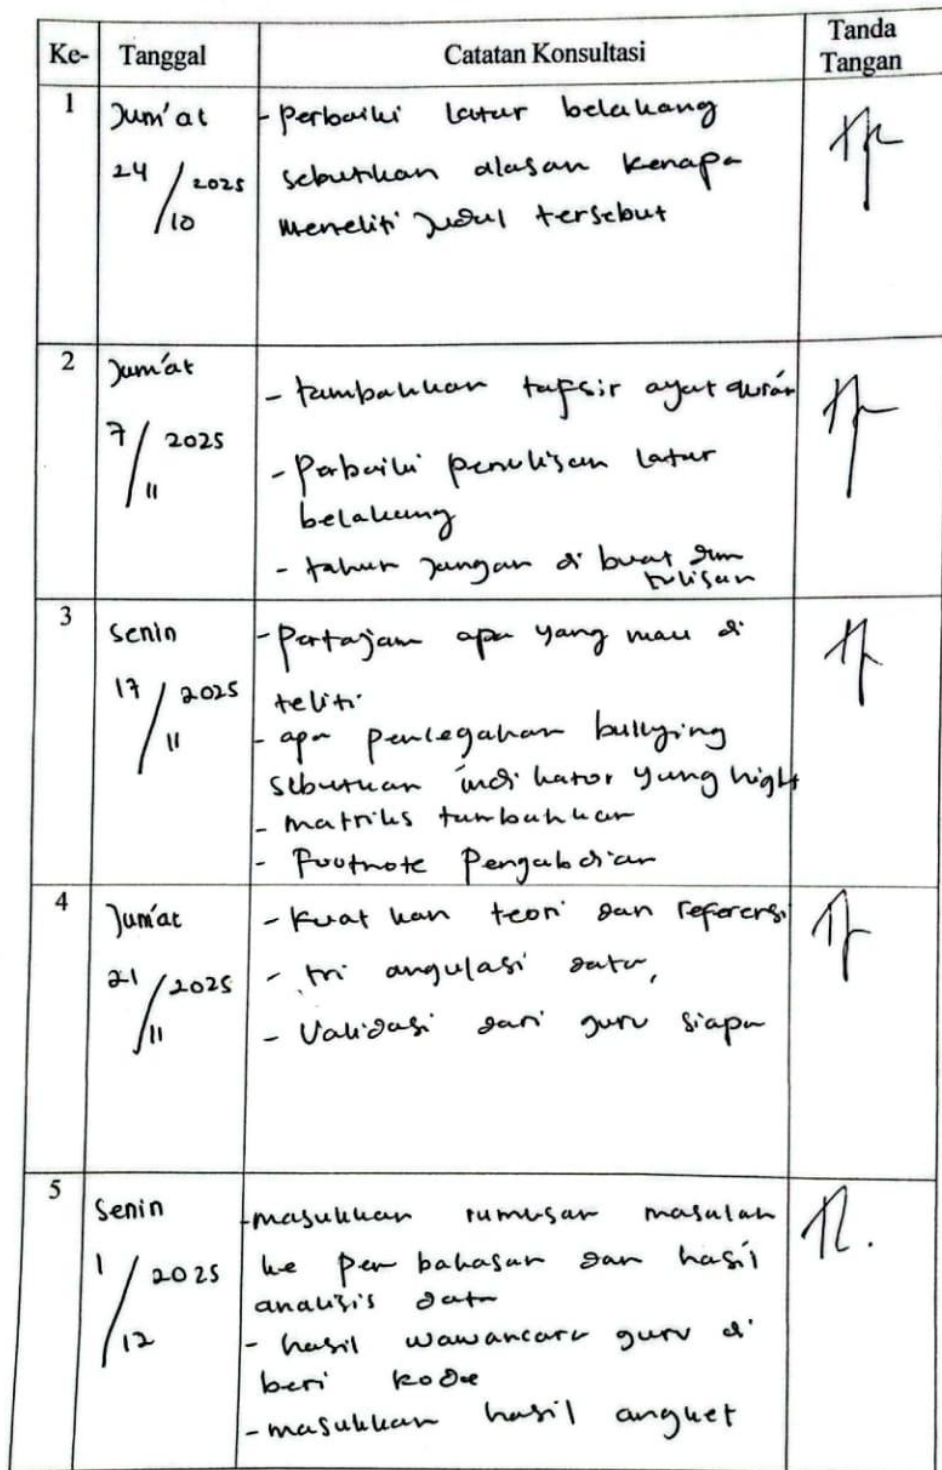 Ke- Tanggal Catatan Konsultasi Tanda Tangan
1
Jum'at
24/10 2025
- Perbaiki latar belakang
sebutkan alasan kenapa
meneliti judul tersebut
2
Jum'at
7/11 2025
- tambahkan tafsir ayat qur'an
- Perbaiki penulisan latar
belakang
- tahun jangan di buat dlm
tulisan
3
Senin
17/11 2025
- Pertajam apa yang mau di
teliti
- apa pencegahan bullying
sebutkan indikator yang hight
- matriks tambahkan
- Footnote Pengabdian
4
Jum'at
21/11 2025
- kuat kan teori dan referensi
- tri angulasi data,
- Validasi dari guru siapa
5
Senin
1/12 2025
- masukkan rumusan masalah
ke pem bahasan dan hasil
analisis data
- hasil wawancara guru di
beri kode
- masukkan hasil angket